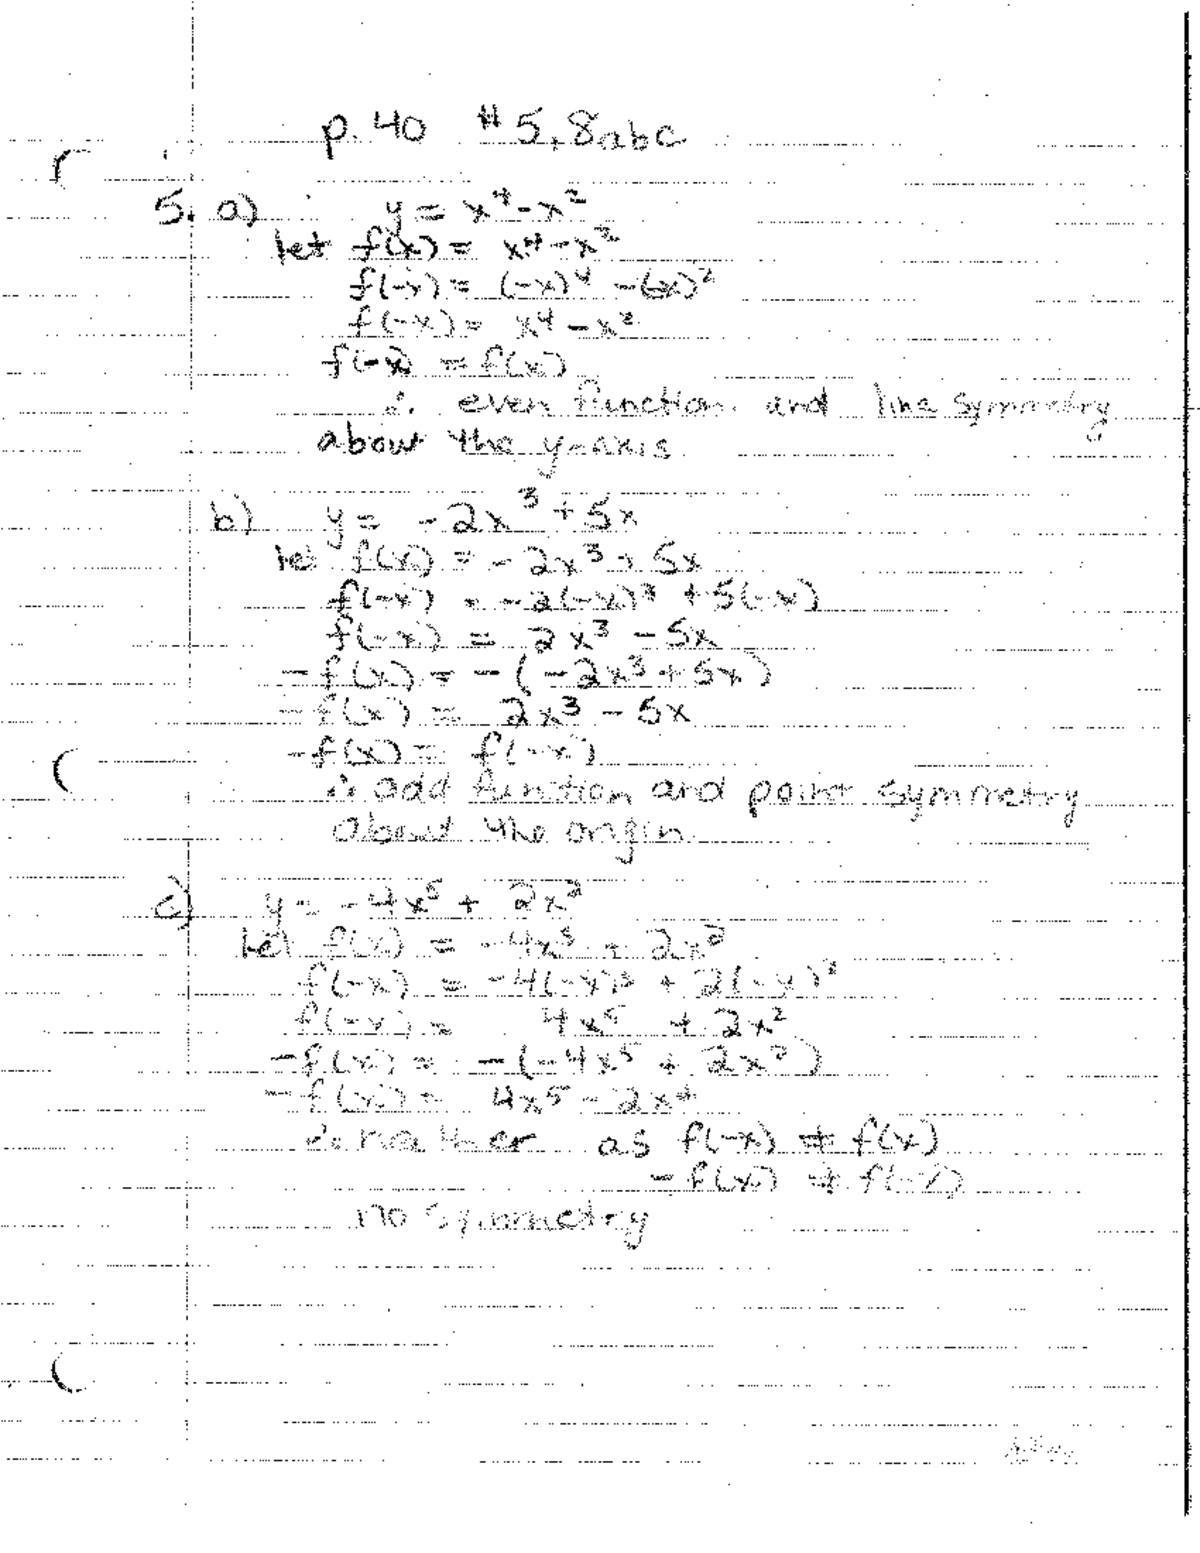 p. 40 #5, 8abc
5. a) y = x⁴ - x²
let f(x) = x⁴ - x²
f(-x) = (-x)⁴ - (-x)²
f(-x) = x⁴ - x²
f(-x) = f(x)
∴ even function and line symmetry
about the y-axis
b) y = -2x³ + 5x
let f(x) = -2x³ + 5x
f(-x) = -2(-x)³ + 5(-x)
f(-x) = 2x³ - 5x
-f(x) = -(-2x³ + 5x)
-f(x) = 2x³ - 5x
-f(x) = f(-x)
∴ odd function and point symmetry
about the origin
c) y = -4x⁵ + 2x²
let f(x) = -4x⁵ + 2x²
f(-x) = -4(-x)⁵ + 2(-x)²
f(-x) = 4x⁵ + 2x²
-f(x) = -(-4x⁵ + 2x²)
-f(x) = 4x⁵ - 2x⁴
∴ neither as f(-x) ≠ f(x)
-f(x) ≠ f(-x)
no symmetry